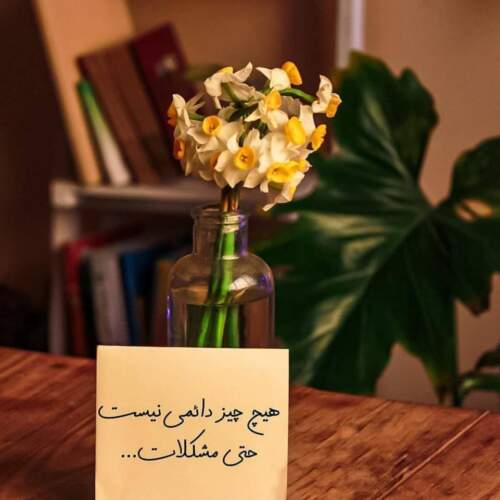 هیچ چیز دائمی نیست
حتی مشکلات...